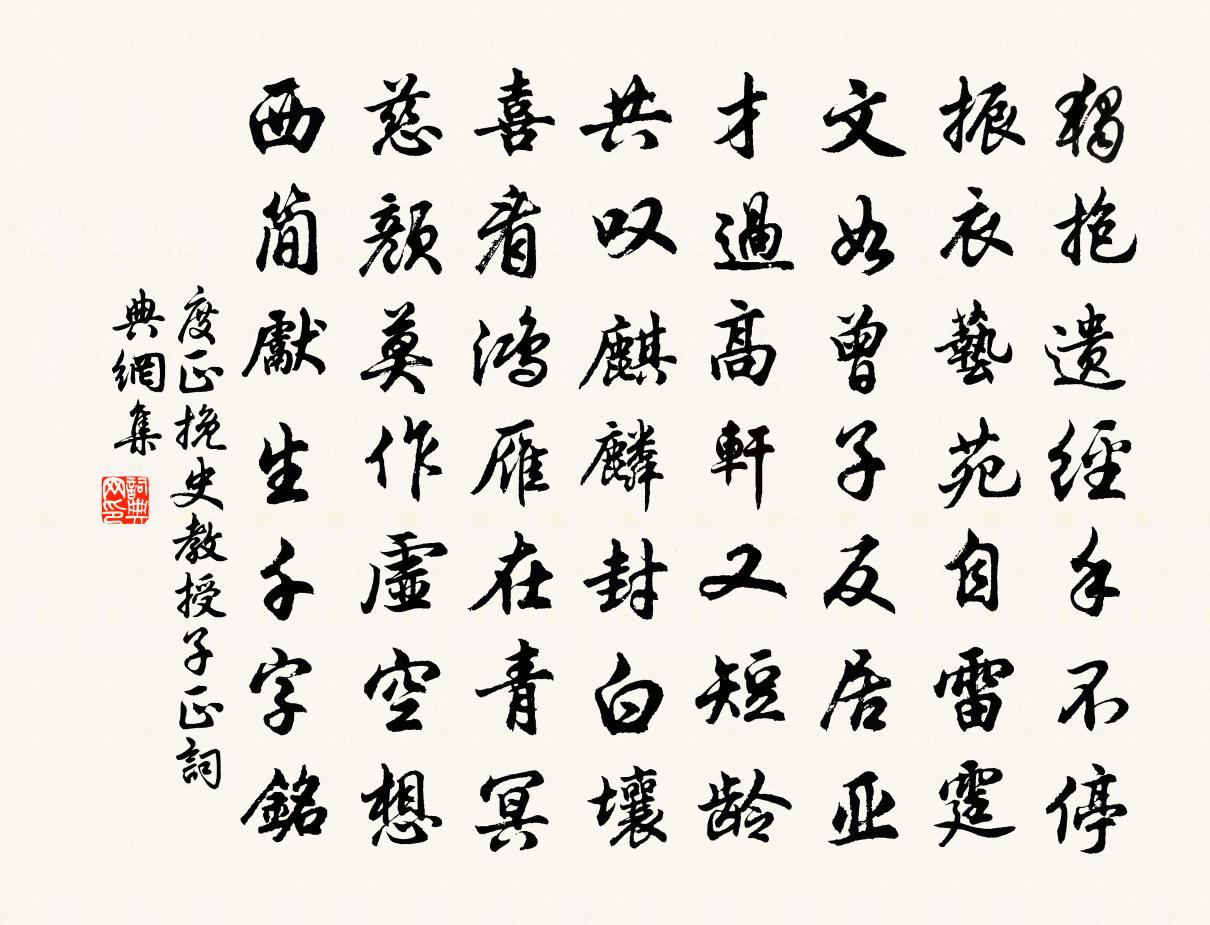 獨抱遗經手不停
振衣藝苑自雷霆
文如曾子反居亚
才過高軒又短龄
共叹麒麟封白壤
喜看鸿雁在青冥
慈颜莫作虛空想
西简獻生千字銘
度正挽史教授子正詞
典網集
詞典网印